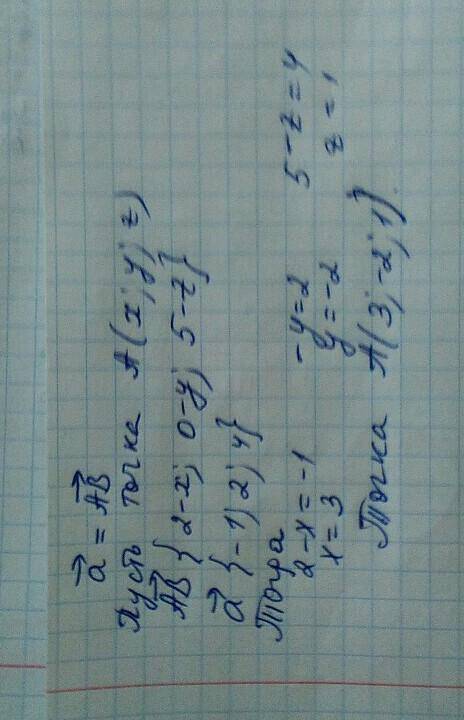 a⃗ = AB⃗
Пусть точка A(x; y; z)
AB⃗ {2-x; 0-y; 5-z}
a⃗ {-1; 2; 4}
Тогда
2-x = -1 -y=2 5-z=4
x = 3 y=-2 z = 1
Точка A(3; -2; 1).